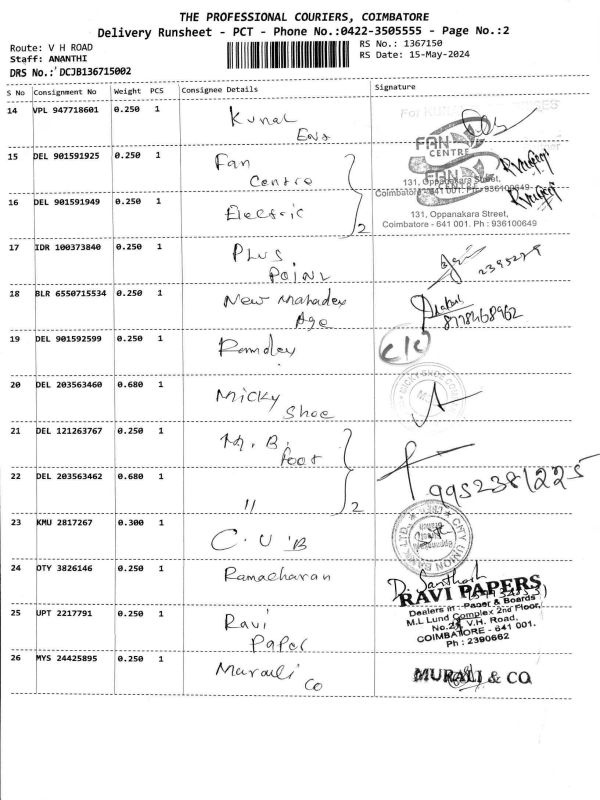 THE PROFESSIONAL COURIERS, COIMBATORE
Delivery Runsheet - PCT - Phone No.:0422-3505555 - Page No.:2
Route: V H ROAD
Staff: ANANTHI
DRS No.: DCJB136715002
RS No.: 1367150
RS Date: 15-May-2024
S No Consignment No Weight PCS Consignee Details Signature
14 VPL 947718601 0.250 1 Kunal
Ens
15 DEL 901591925 0.250 1 Fan
Centre
FAN
CENTRE
131, Oppanakara Street,
Coimbatore - 641 001. Ph : 936100649
16 DEL 901591949 0.250 1 Electric
2
131, Oppanakara Street,
Coimbatore - 641 001. Ph : 936100649
17 IDR 100373840 0.250 1 Plus
Point
2395229
18 BLR 6550715534 0.250 1 New Mahadev
Age
8778468962
19 DEL 901592599 0.250 1 Ramdev
C/C
20 DEL 203563460 0.680 1 Micky
Shoe
21 DEL 121263767 0.250 1 M. B.
Foot
22 DEL 203563462 0.680 1 11
2
9952381225
23 KMU 2817267 0.300 1 C.U.B
CITY UNION BANK LTD.
24 OTY 3826146 0.250 1 Ramacharan
D. Santhosh
25 UPT 2217791 0.250 1 Ravi
Paper
RAVI PAPERS
Dealers in : Paper & Boards
M.L Lund Complex 2nd Floor,
V.H. Road,
COIMBATORE - 641 001.
Ph : 2390662
26 MYS 24425895 0.250 1 Murali
Co
MURALI & CO